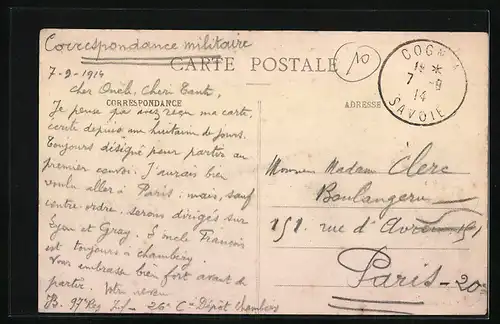 Correspondance militaire
CARTE POSTALE
10
COGNIN
18 *
7 - 9
14
SAVOIE
7-9-1914
Cher Oncle, Chère Tante,
CORRESPONDANCE
ADRESSE
Je pense que avez reçu ma carte,
écrite depuis un huitaine de jours.
Toujours désigné pour partir au
premier convoi. J'aurais bien
voulu aller à Paris; mais, sauf
contre-ordre, serons dirigés sur
Lyon et Gray. L'oncle François
est toujours à Chambéry.
Vous embrasse bien fort avant de
partir. Votre neveu
B. 97e Reg. - 26e Cie Dépôt Chambéry
Monsieur Madame Clerc
Boulangerie
151. rue d'Avron 151
Paris-20e